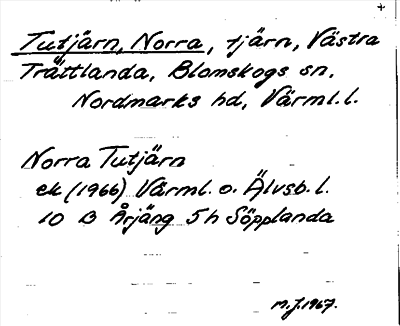 +
Tutjärn, Norra, tjärn, Västra
Trättlanda, Blomskogs sn.
Nordmarks hd, Värml. l.
Norra Tutjärn
ek (1966) Värml. o. Älvsb. l.
10 B Årjäng 5h Söpplanda
M.J. 1967.